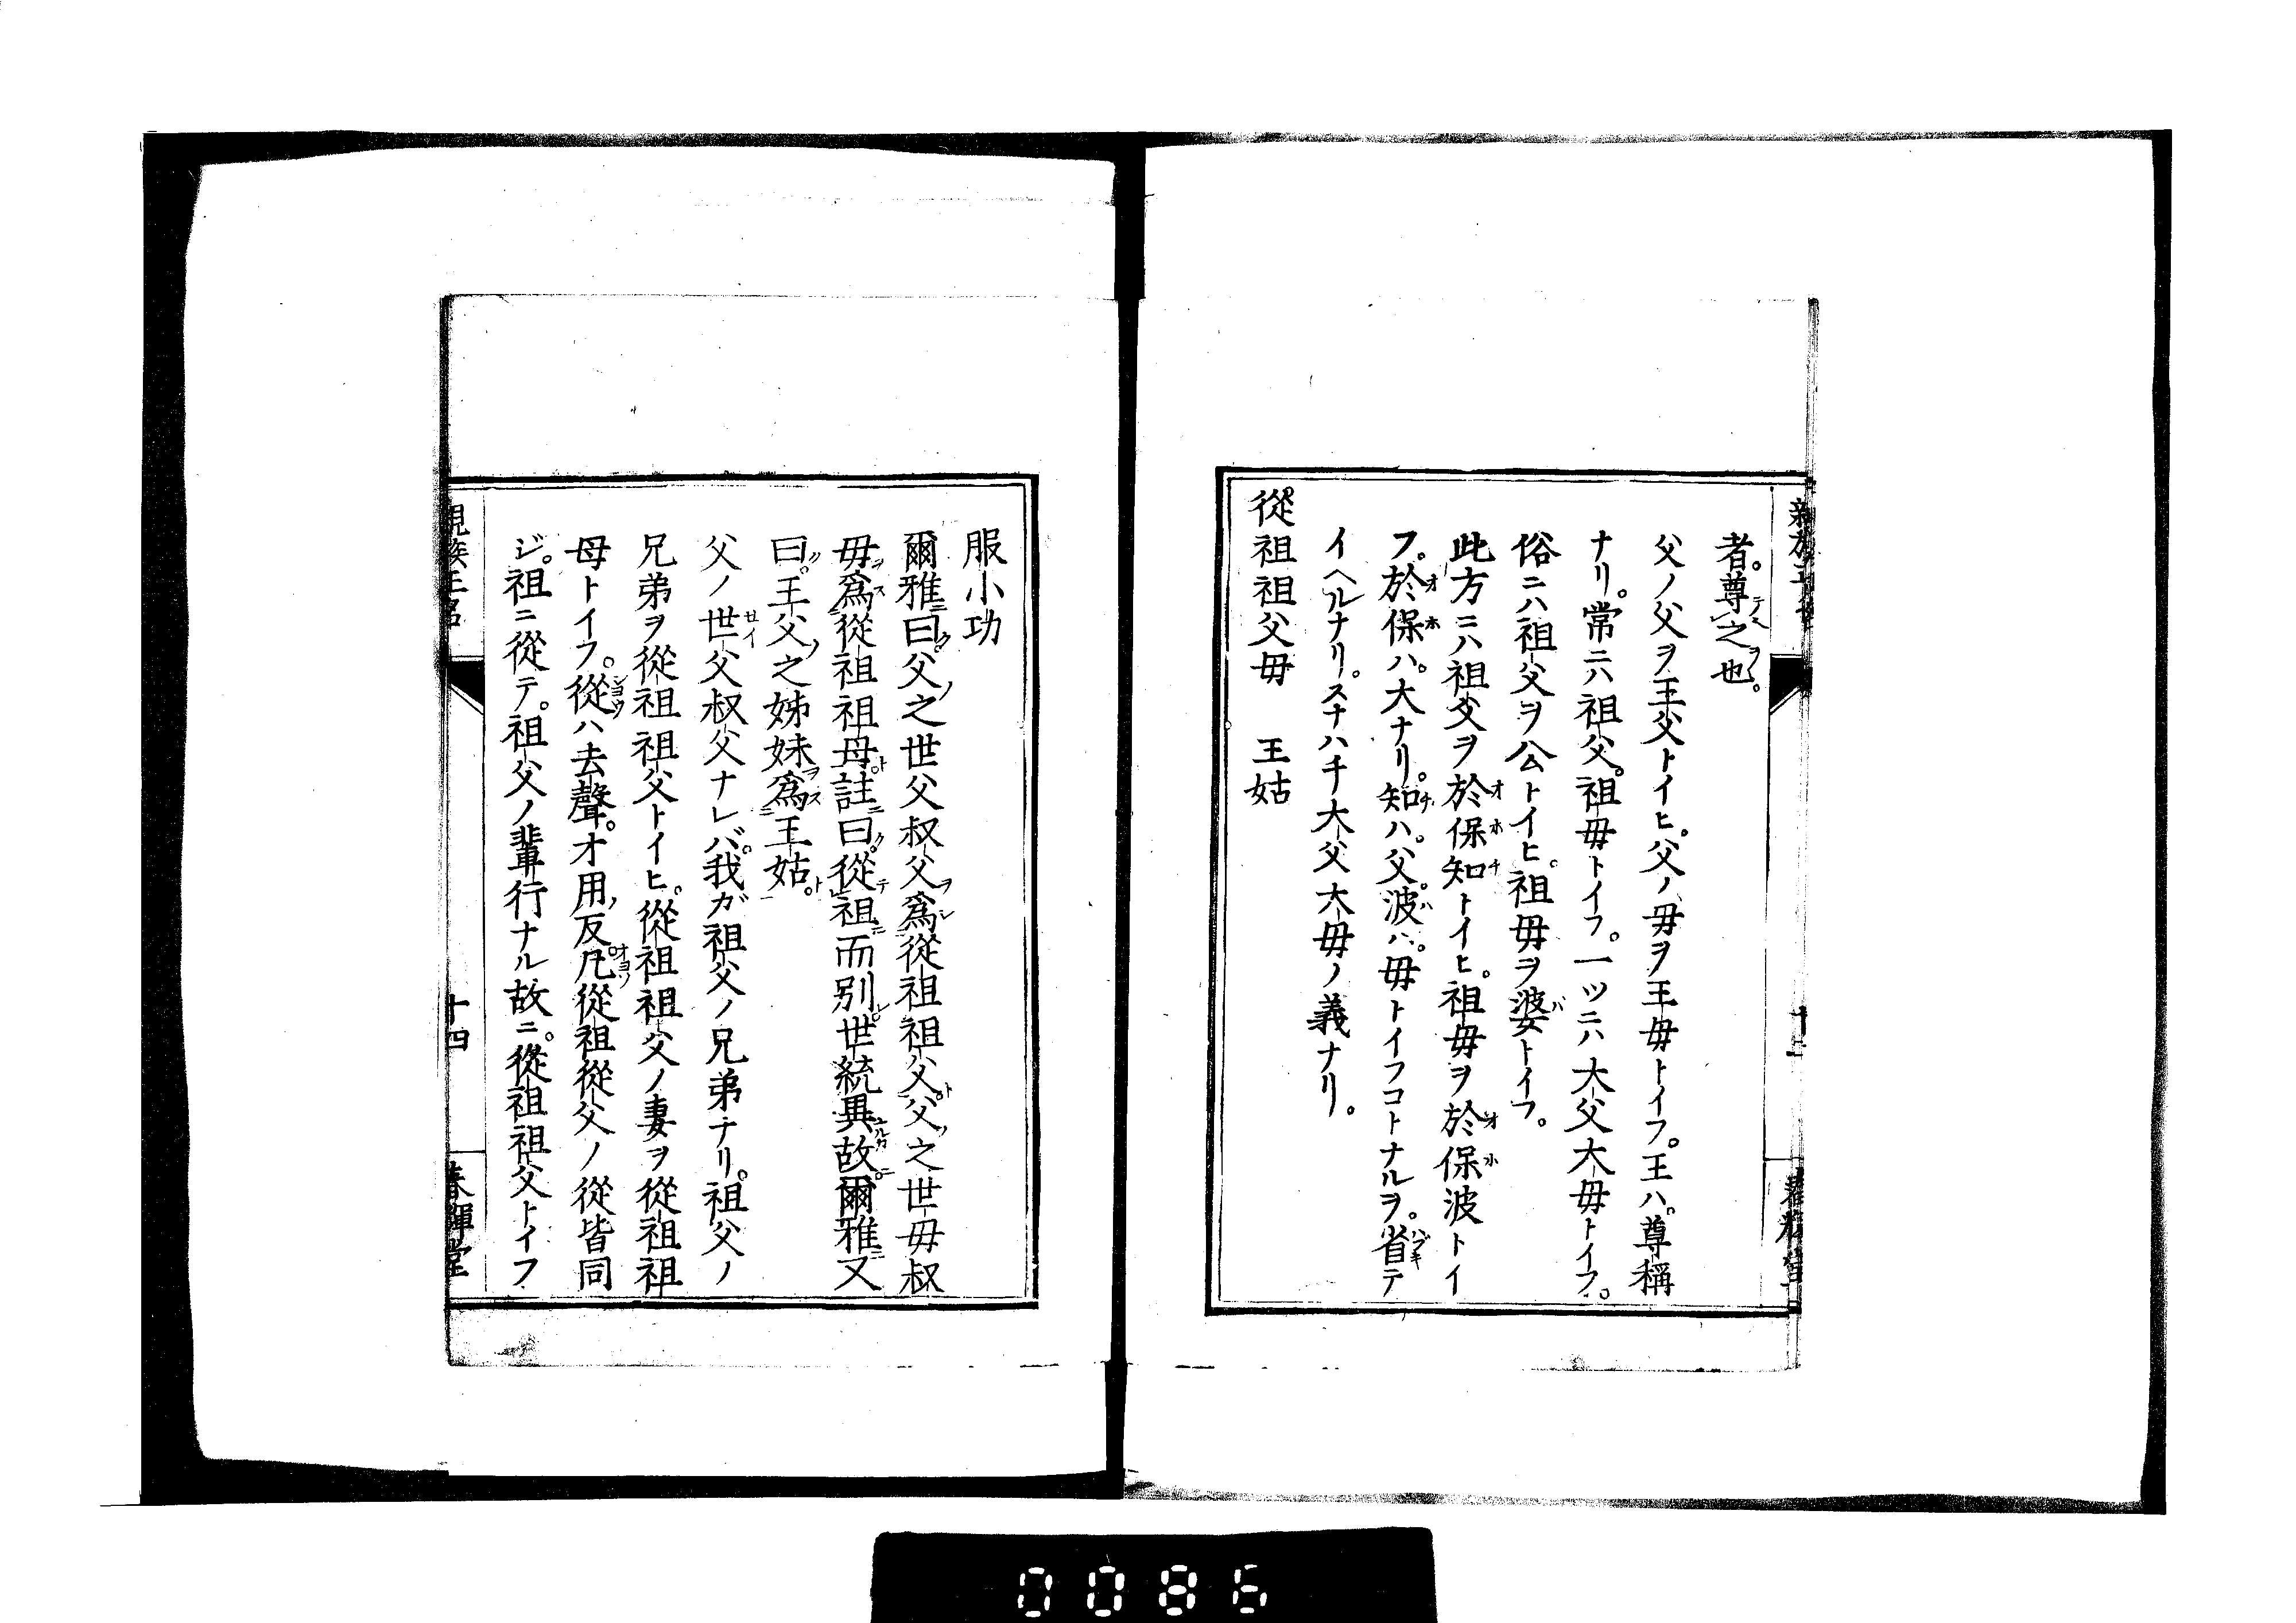 者。尊之也。
父ノ父ヲ王父トイヒ。父ノ毋ヲ王毋トイフ。王ハ。尊稱
ナリ。常ニハ祖父。祖毋トイフ。一ツニハ大父大毋トイフ。
俗ニハ祖父ヲ公トイヒ。祖毋ヲ婆トイフ。
此方ニハ祖父ヲ於保知トイヒ。祖毋ヲ於保波トイ
フ。於保ハ。大ナリ。知ハ。父。波ハ。毋トイフコトナルヲ。省テ
イヘルナリ。スナハチ大父大毋ノ義ナリ。
從祖祖父毋　王姑
服小功
爾雅曰。父之世父叔父爲從祖祖父。父之世毋叔
毋爲從祖祖母註曰。從祖而別。世統異故爾雅又
曰。王父之姊妹爲王姑。
父ノ世父叔父ナレバ。我ガ祖父ノ兄弟ナリ。祖父ノ
兄弟ヲ從祖祖父トイヒ。從祖祖父ノ妻ヲ從祖祖
母トイフ。從ハ去聲。才用反凡從祖從父ノ從皆同
ジ。祖ニ從テ。祖父ノ輩行ナル故ニ。從祖祖父トイフ
親族正名
十四
春暉堂
0086